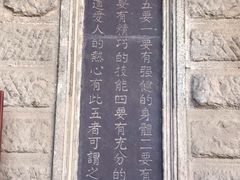 五要一要有強健的身體二要有
要有精巧的技能四要有充分的
這愛人的熱心有此五者可謂之